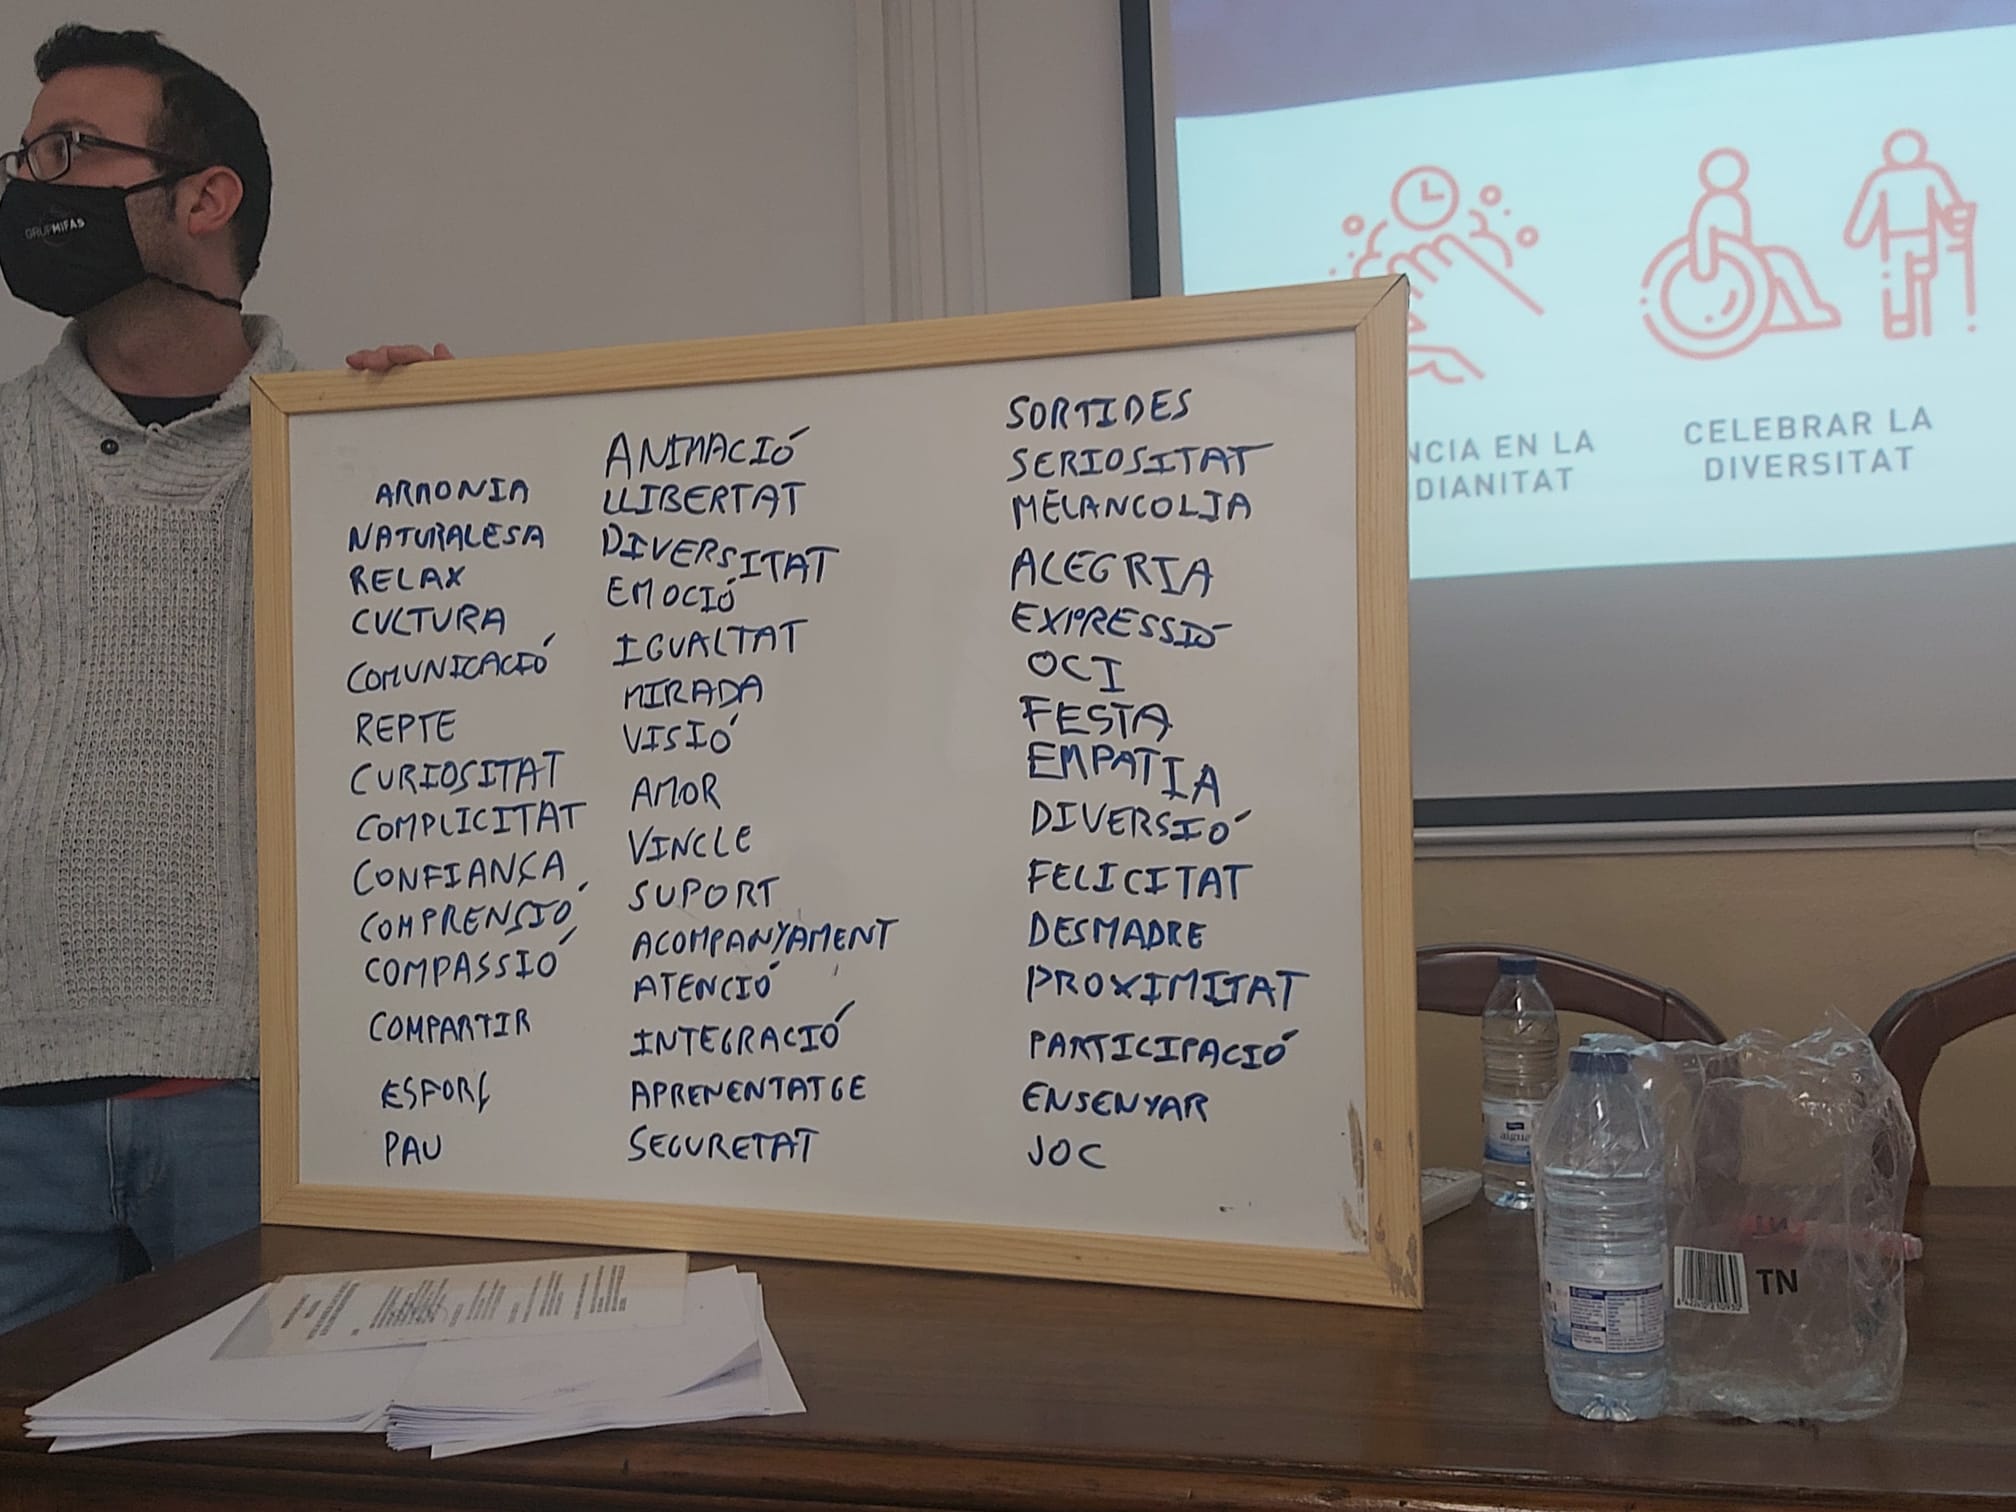 GRUPMIFAS
ARMONIA
NATURALESA
RELAX
CULTURA
COMUNICACIÓ
REPTE
CURIOSITAT
COMPLICITAT
CONFIANÇA
COMPRENSIÓ
COMPASSIÓ
COMPARTIR
ESFORÇ
PAU
ANIMACIÓ
LLIBERTAT
DIVERSITAT
EMOCIÓ
IGUALTAT
MIRADA
VISIÓ
AMOR
VINCLE
SUPORT
ACOMPANYAMENT
ATENCIÓ
INTEGRACIÓ
APRENENTATGE
SEGURETAT
SORTIDES
SERIOSITAT
MELANCOLIA
ALEGRIA
EXPRESSIÓ
OCI
FESTA
EMPATIA
DIVERSIÓ
FELICITAT
DESMADRE
PROXIMITAT
PARTICIPACIÓ
ENSENYAR
JOC
NCIA EN LA
DIANITAT
CELEBRAR LA
DIVERSITAT
TN